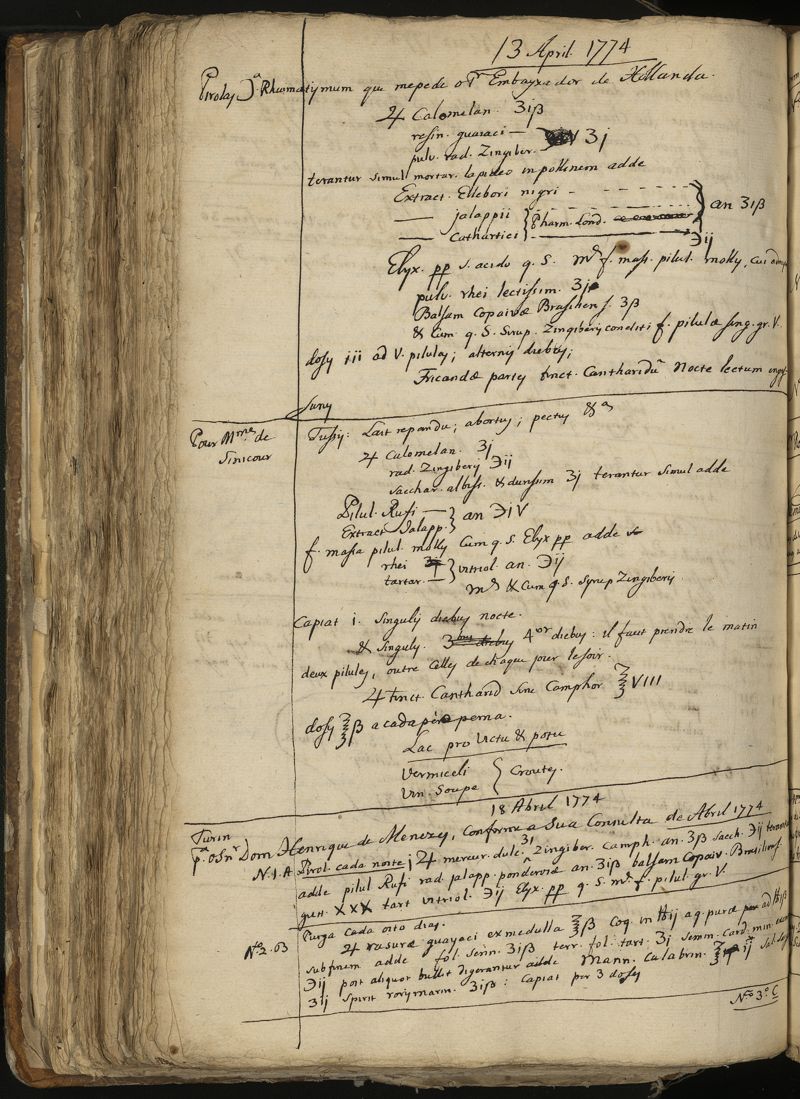 13 April. 1774
Pirolas Pª Rheumatismum que mepede o Sr Embayxador de Hollanda.
♃ Calomelan. ʒiß
resin. guaiaci —
pulv. rad. Zingiber. ʒj
terantur simul mortar. lapideo in pollinem adde
Extract. Ellebori nigri
— jalappii Pharm. Lond. an ʒiß
— Cathartici ℈ij
Elyx. pp s. acido q. S. m. f. mass. pilul. molly, cui
pulv. rhei lectissim. ʒj
Balsam Copaivæ Brasiliens. ʒß
& Cum q. S. Sirup. Zingiberis conditi f. pilulæ sing. gr. V.
dosy iii ad V. pilulas; alternis diebus;
Fricandæ partes tinct. Cantharidũ Nocte lectum
Juny
Pour Mme de
Sinicour
Tussis: Lait repandu; abortus; pectus &ª
♃ Calomelan. ʒj
rad. Zingiberis ℈ij
sacchar. albiss. & durissim ʒj terantur simul adde
Pilul. Rufi —
Extract Jalapp. an ℈iV
f. massa pilul. molly Cum q. S. Elyx pp adde
rhei
tartar. — vitriol an. ℈ij
m. & Cum q. S. Syrup Zingiberis
Capiat i. Singulis diebus nocte.
& Singulis. 4or diebus: il faut prendre le matin
deux pilules, outre Celles de chaque jour le soir.
♃ tinct. Cantharid sine Camphor. ℥VIII
dosy ℥ß a cada perna.
Lac pro Victu & potu
Vermiceli
Vin. Soupe Croutes.
18 Abril 1774
Turin
pª o Snr Dom Henrique de Menezes, Conforme a Sua Consulta de Abril 1774
N. 1. A Pirol. cada noite j ♃ mercur. dulc. ʒi Zingiber. Camph. an. ʒß Sacch. ℈ij
adde pilul Rufi rad. jalapp. ponderosæ an. ʒiß balsam Copaiv. Brasiliens.
gutt. XXX tart vitriol. ℈ij Elyx. pp q. S. m. f. pilul. gr. V.
Purga cada oito dias.
No 2. B ♃ rasuræ guayaci ex medulla ℥ß Coq. in ℔ij aq. puræ ad ℔ß
sub finem adde fol. senn. ʒiß terr. fol. tart. ʒj semin. Card. min.
℈ij post aliquot bullit digerantur adde Mann. Calabrin. ℥ij
ʒij Spirit rorismarin. ʒiß: Capiat per 3 doses
No 3º C